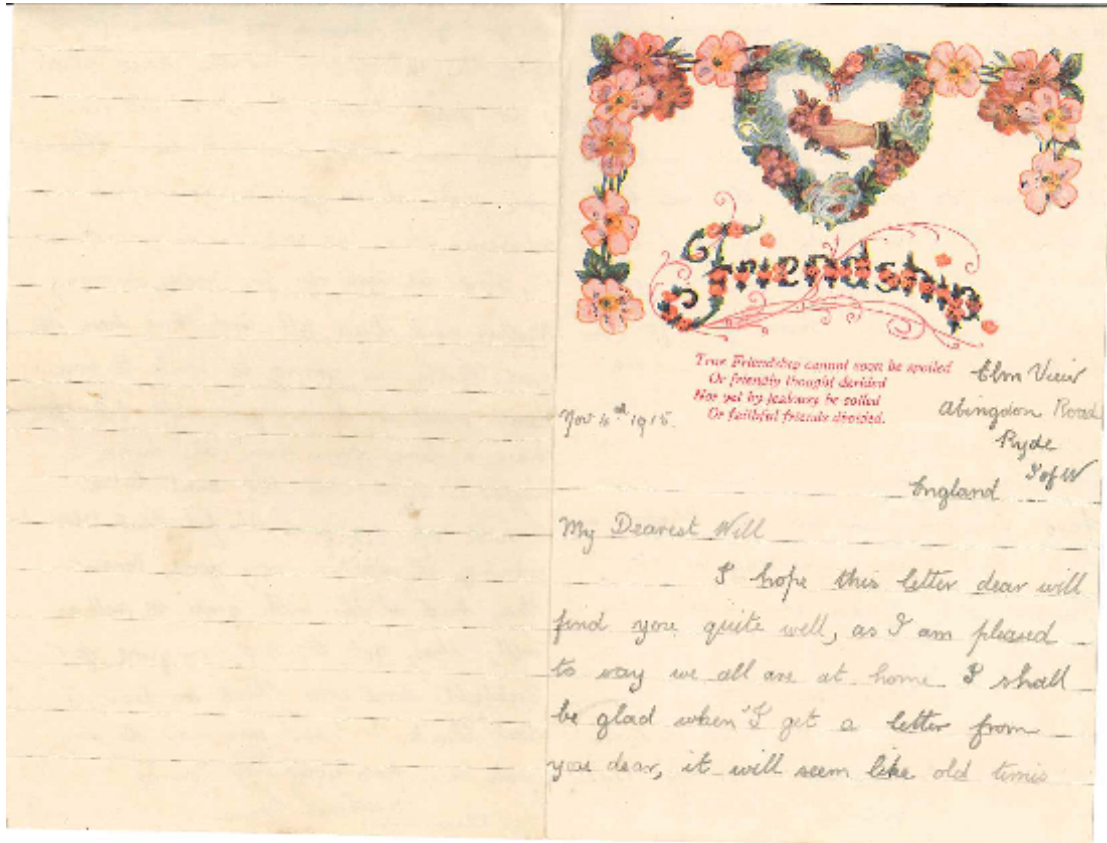 Friendship
True Friendship cannot soon be spoiled
Or friendly thought derided
Nor yet by jealousy be soiled
Or faithful friends divided.
Elm View
Abingdon Road
Ryde
I of W
England
Nov 1915.
My Dearest Will
I hope this letter dear will
find you quite well, as I am pleased
to say we all are at home I shall
be glad when I get a letter from
you dear, it will seem like old times